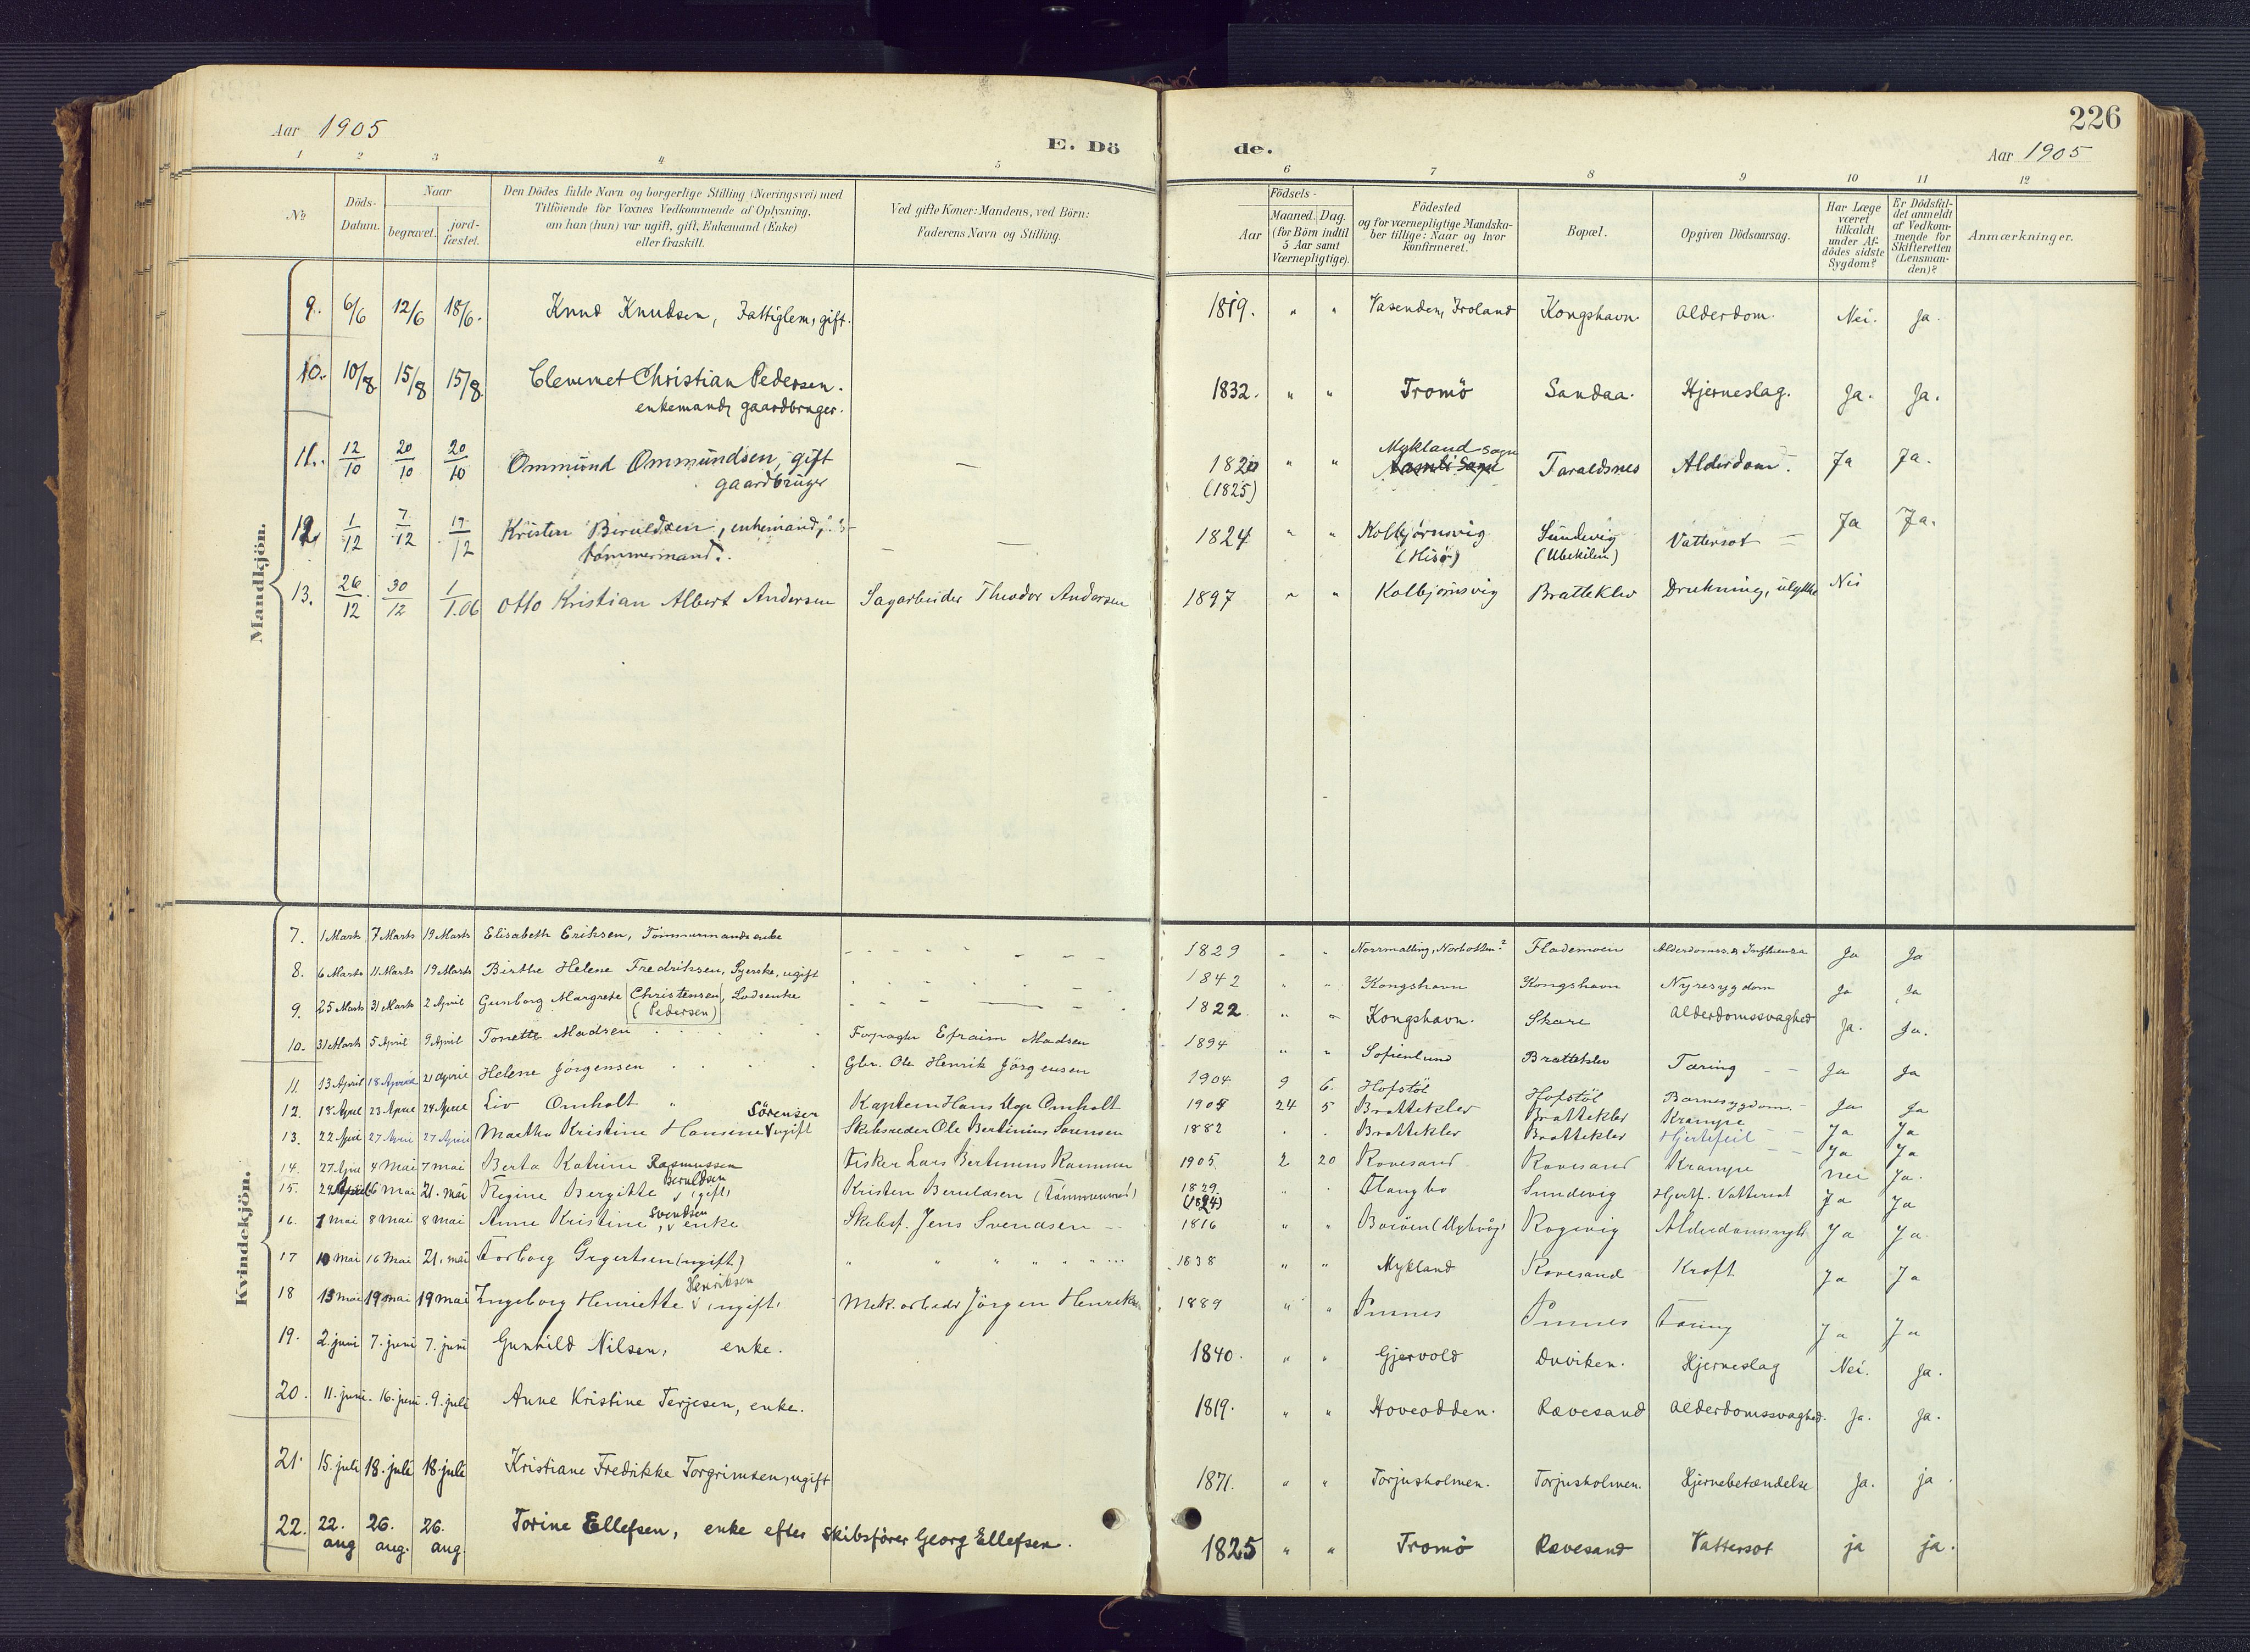 226
Aar 1905
E. Dö de.
Aar 1905
1 2 3 4 5 6 7 8 9 10 11 12
No
Döds-Datum.
Naar
begravet.
jord-fæstet.
Den Dödes fulde Navn og borgerlige Stilling (Næringsvei) med
Tilföiende for Voxnes Vedkommende af Oplysning,
om han (hun) var ugift, gift, Enkemand (Enke)
eller fraskilt.
Ved gifte Koner: Mandens, ved Börn:
Faderens Navn og Stilling.
Födsels-
Aar
Maaned. Dag.
(for Börn indtil
5 Aar samt
Værnepligtige).
Födested
og for værnepligtige Mandska-
ber tillige: Naar og hvor
konfirmeret.
Bopæl.
Opgiven Dödsaarsag.
Har Læge
været
tilkaldt
under Af-
dödes sidste
Sygdom?
Er Dödsfal-
det anmeldt
af Vedkom-
mende for
Skifteretten
(Lensman-
den)?
Anmærkninger.
Mandkjön.
9. 6/6 12/6 18/6. Knud Knudsen, Fattiglem, gift. 1819. " " Vasenden, Froland Kongshavn. Alderdom. Nei. Ja.
10. 10/8 15/8 15/8. Clemmet Christian Pedersen. 1832. " " Tromö Sandaa. Hjerneslag. Ja. Ja.
enkemand, gaardbruger.
11. 12/10 20/10 20/10 Ommund Ommundsen, gift — 1820 " " Mykland sogn Taraldsnes Alderdom. Ja Ja.
gaardbruger (1825)
12. 1/12 7/12 17/12 Kristen Beruldsen, enkemand, — — 1824 " " Kolbjörnsvig Sundevig Vattersot — Ja Ja.
tömmermand. (Hisø) (Ubekilen)
13. 26/12 30/12 1/1.06 Otto Kristian Albert Andersen Sagarbeider Theodor Andersen 1897 " " Kolbjörnsvig Bratteklev Drukning, ulykke Nei
Kvindekjön.
7. 1 Marts 7 Marts 19 Marts Elisabeth Eriksen, Tömmermands enke 1829 " " Norrmalling, Norbotten? Flademoen Alderdomss. & Influenza Ja Ja
8. 6 Marts 11 Marts 19 Marts Birthe Helene Fredriksen, Syerske, ugift 1842 " " Kongshavn Kongshavn Nyresygdom Ja Ja
9. 25 Marts 31 Marts 2 April Gunborg Margrete (Christensen), Lodsenke 1822. " " Kongshavn. Skare Alderdomssvaghed Ja. Ja.
(Pedersen)
10. 31 Marts 5 April 9 April Tonette Madsen Forpagter Efraim Madsen 1894 " " Sofienlund Bratteklev Tæring — Ja Ja
11. 13 April 18 April 21 April Helene Jörgensen Gbr. Ole Henrik Jörgensen 1904 9 6. Hofstöl Hofstöl Barnesygdom. Ja Ja
12. 18 April 23 April 24 April Liv Omholt " Kaptein Hans Aage Omholt 1905 24 5 Bratteklev Bratteklev Krampe Ja Ja
13. 22 April 27 April 27 April Martha Kristine Hansine Sörensen ugift Skibsreder Ole Bertinius Sörensen 1882 " " Bratteklev Bratteklev Hjertefeil Ja Ja
14. 27 April 4 Mai 7 mai Berta Katrine Rasmussen Fisker Lars Bertinius Rasmussen 1905 2 20 Ravesand Ravesand Krampe nei Ja.
15. 29 April 6 mai 21. mai Regine Bergitte Beruldsen (gift) Kristen Beruldsen (tömmermand) 1829 " " Flangbo Sundevig Hjertf. Vattersot Ja Ja
(1824)
16. 1 mai 8 mai 8 mai Anne Kristine Svendsen, enke Skibsf. Jens Svendsen 1816 " " Boröen (Dybvåg) Rogevig Ja Ja
17 10 mai 16 Mai 21. mai Torborg Gregertsen (ugift) " " " " 1838 " " Mykland Ravesand Kræft Ja Ja
18 13 mai 19 mai 19 mai Ingeborg Henriette Henriksen (ugift) Mek. arbeider Jörgen Henriksen 1889 " " Pusnes Pusnes Tæring Ja Ja
19. 2. juni 7. juni 7. juni Gunhild Nilsen, enke. 1840. " " Gjervold Duviken. Hjerneslag Nei. Ja.
20. 11. juni. 16. juni. 9. juli Anne Kristine Terjesen, enke. 1819. " " Hoveodden. Rævesand Alderdomssvaghed. Ja. Ja.
21. 15. juli 18. juli 18. juli Kristiane Fredrikke Torgrimsen, ugift 1871. " " Torjusholmen. Torjusholmen. Hjernebetændelse Ja. ja.
22. 22. aug 26. aug. 26. aug. Torine Ellefsen, enke efter skibsförer Georg Ellefsen. 1825 " " Tromö Rævesand Vattersot ja ja.